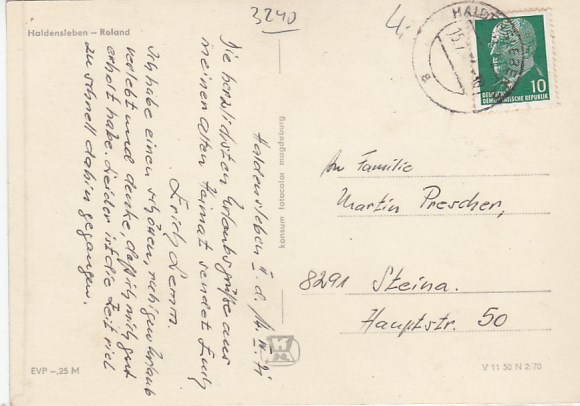 Haldensleben — Roland
3240
4,-
HALDENSLEBEN
10
DEUTSCHE
DEMOKRATISCHE REPUBLIK
Haldensleben II d.
Die herzlichsten Urlaubsgrüße aus
meiner alten Heimat sendet Euch
Erich Lemm.
Ich habe einen schönen, ruhigen Urlaub
verlebt und denke, daß ich mich gut
erholt habe. Leider ist die Zeit viel
zu schnell dahin gegangen.
kunsum fotocolor magdeburg
An Familie
Martin Prescher,
8291 Steina.
Hauptstr. 50
EVP —,25 M
V 11 50 N 2/70